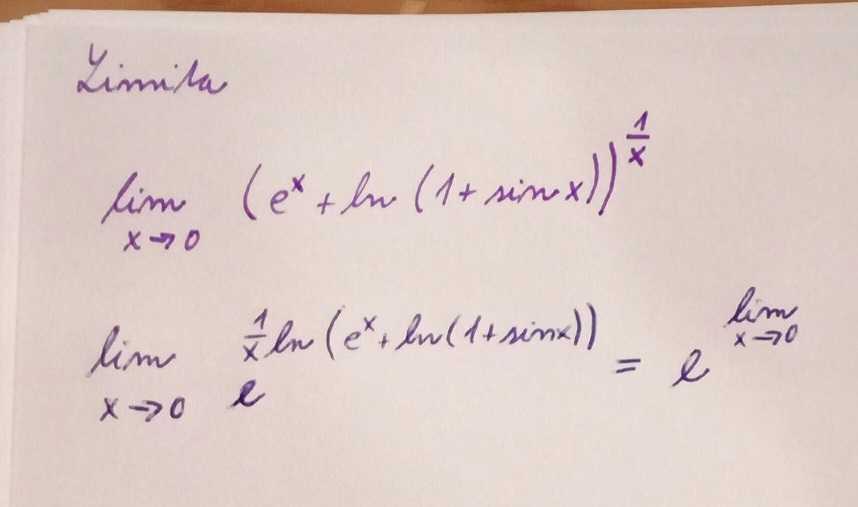 Limita
lim x→0 (eˣ + ln (1 + sin x))^(1/x)
lim x→0 e^(1/x ln (eˣ + ln (1 + sin x))) = e^(lim x→0)